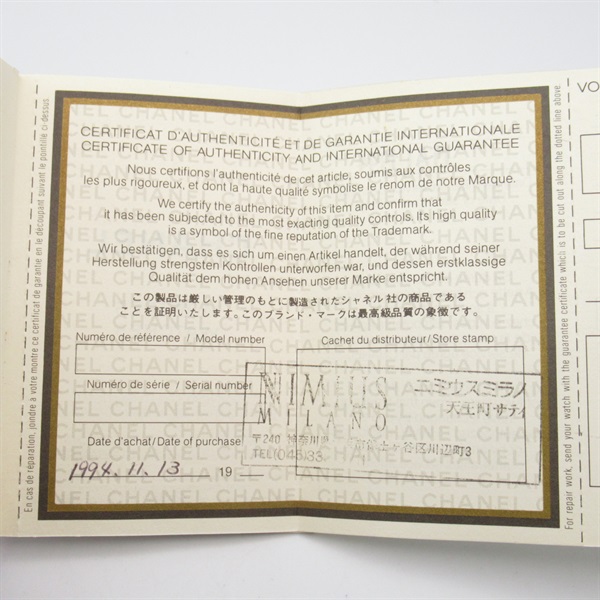 CERTIFICAT D'AUTHENTICITÉ ET DE GARANTIE INTERNATIONALE
CERTIFICATE OF AUTHENTICITY AND INTERNATIONAL GUARANTEE
Nous certifions l'authenticité de cet article, soumis aux contrôles
les plus rigoureux, et dont la haute qualité symbolise le renom de notre Marque.
We certify the authenticity of this item and confirm that
it has been subjected to the most exacting quality controls. Its high quality
is a symbol of the fine reputation of the Trademark.
Wir bestätigen, dass es sich um einen Artikel handelt, der während seiner
Herstellung strengsten Kontrollen unterworfen war, und dessen erstklassige
Qualität dem hohen Ansehen unserer Marke entspricht.
この製品は厳しい管理のもとに製造されたシャネル社の商品である
ことを証明いたします。このブランド・マークは最高級品質の象徴です。
Numéro de référence / Model number
Cachet du distributeur/Store stamp
Numéro de série / Serial number
NIMIUS
MILANO
ニミウスミラノ
天王町サティ
〒240 神奈川県
土ヶ谷区川辺町3
TEL(045)33
Date d'achat/Date of purchase
1994.11.13
19
En cas de réparation, joindre à votre montre ce certificat de garantie en le découpant suivant le pointillé ci-dessus.
For repair work, send your watch with the guarantee certificate which is to be cut out along the dotted line above.
VO